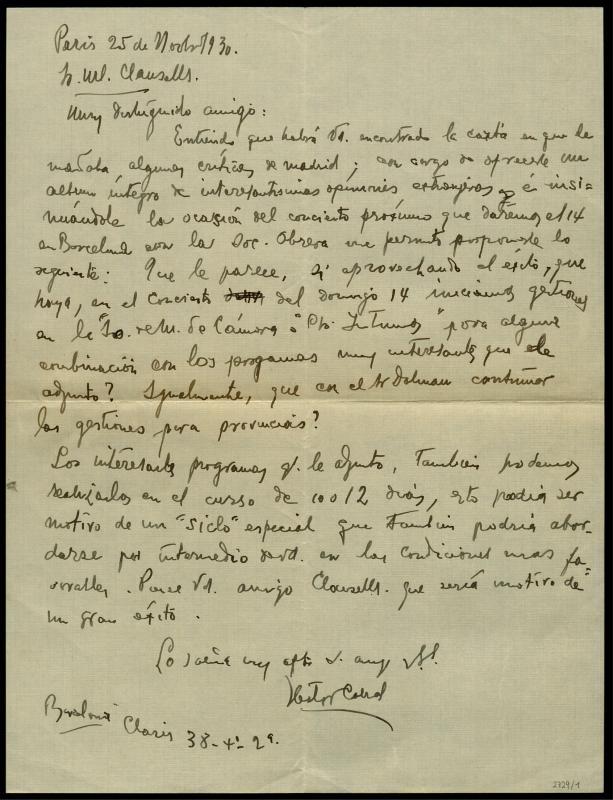 Paris 25 de Novbre 1930.
Sr. M. Clausells.
Muy distinguido amigo:
Entiendo que habrá Vd. encontrado la carta en que le
mandaba algunas críticas de Madrid; con cargo de ofrecerle un
album íntegro de interesantisimas opiniones extranjeras é insi-
nuándole la ocasión del concierto próximo que daremos el 14
en Barcelona con la Soc. Obrera me permito proponerle lo
siguiente: Que le parece, si aprovechando el éxito, que
haya, en el Concierto del domingo 14 iniciamos gestiones
en la de Cámara ó "para alguna
combinación con los programas muy interesantes que le
adjunto? Igualmente, que con el Sr continuar
las gestiones para provincias?
Los interesantes programas q. le adjunto, tambien podemos
realizarlos en el curso de 10 o 12 dias, esto podría ser
motivo de un "siclo" especial que tambien podría abor-
darse por intermedio de Vd. en las condiciones mas fa-
vorables. Piense Vd. amigo Clausells. que sería motivo de
un gran éxito.
Lo saluda muy afto. S. amigo
Hector Cabral
Barcelona Claris 38-4º 2ª.
2729/1